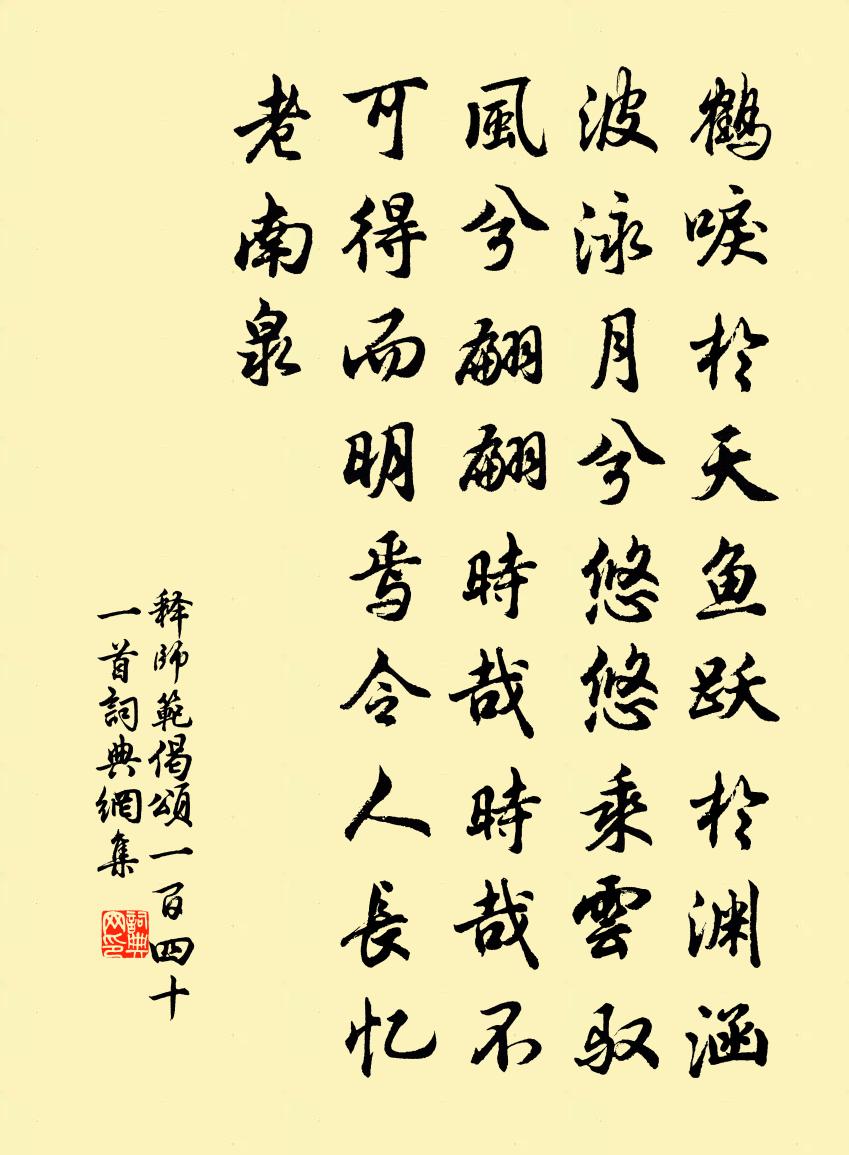 鶴唳於天鱼跃於渊涵
波泳月兮悠悠乘雲驭
風兮翩翩時哉時哉不
可得而明焉令人長忆
老南泉
释師範偈頌一百四十
一首詞典網集
詞典网印